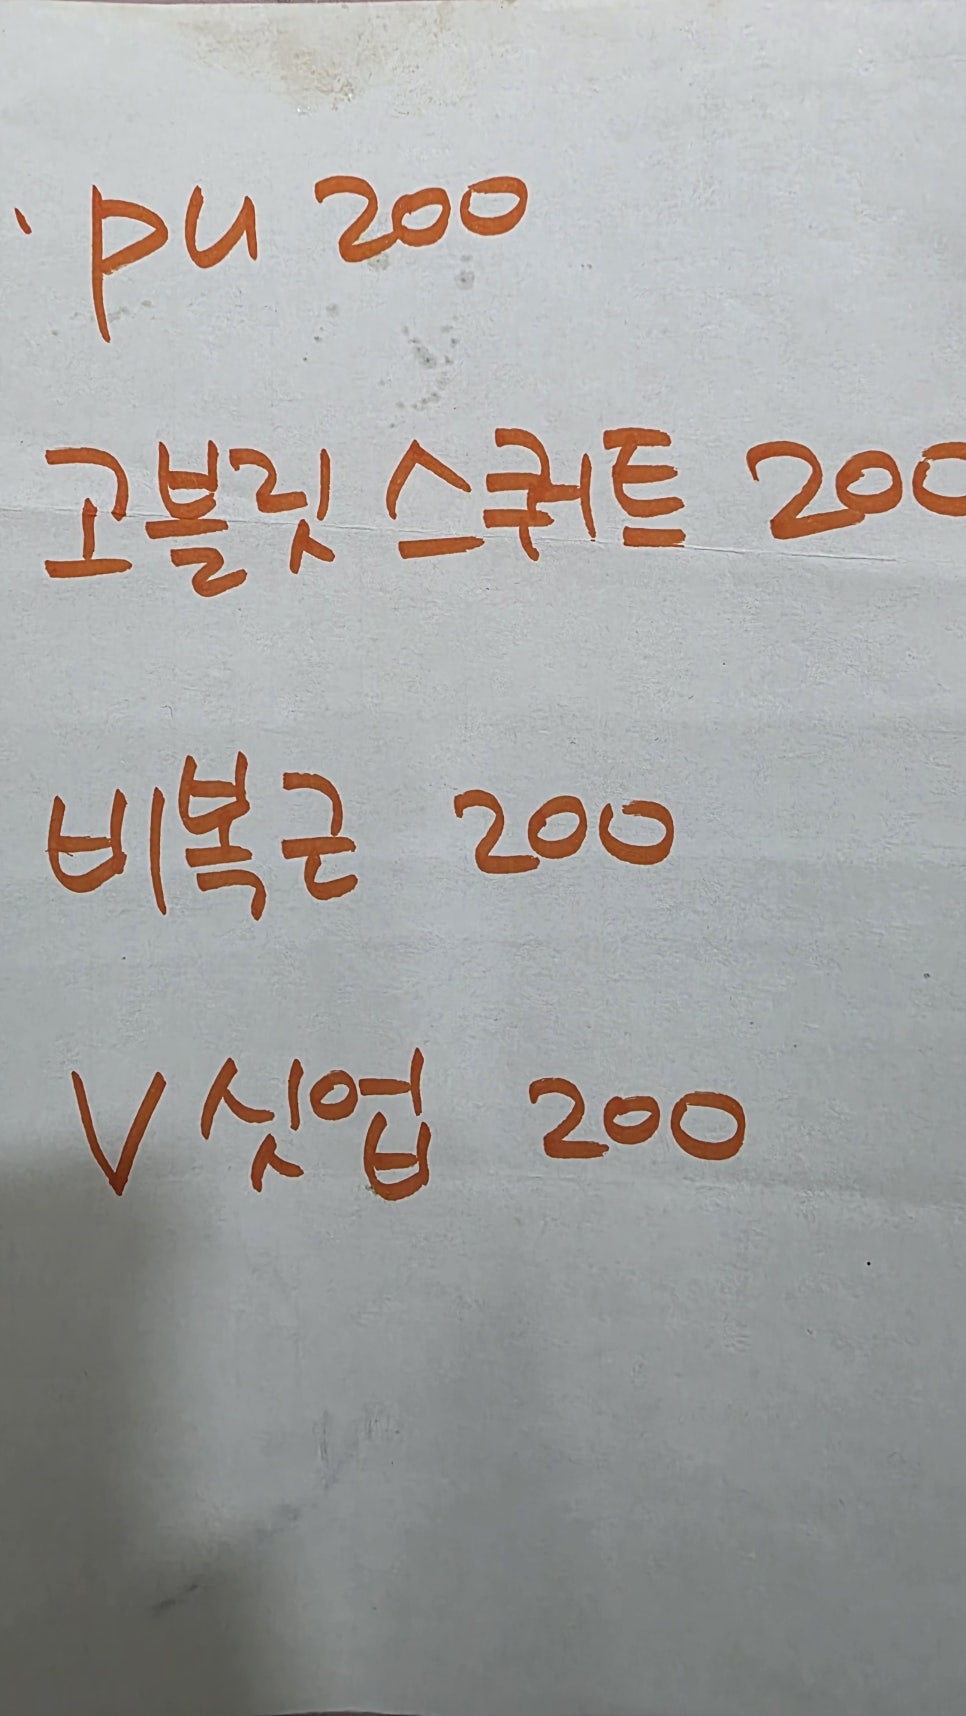 pu 200
고블릿 스쿼트 200
비복근 200
V 싯업 200